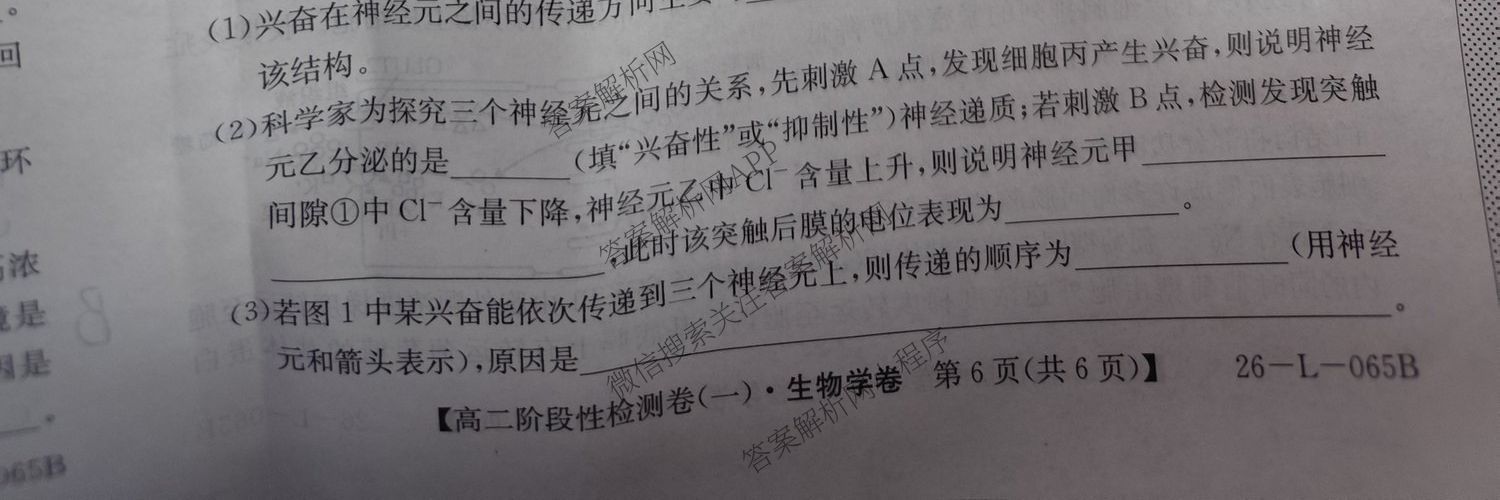 (1)兴奋在神经元之间的传递方向主要
该结构。
(2)科学家为探究三个神经元之间的关系,先刺激A点,发现细胞丙产生兴奋,则说明神经
元乙分泌的是________(填“兴奋性”或“抑制性”)神经递质;若刺激B点,检测发现突触
间隙①中Cl⁻含量下降,神经元乙中Cl⁻含量上升,则说明神经元甲________
________,此时该突触后膜的电位表现为________。
(3)若图1中某兴奋能依次传递到三个神经元上,则传递的顺序为________(用神经
元和箭头表示),原因是________。
【高二阶段性检测卷(一)·生物学卷 第6页(共6页)】 26-L-065B
回
环
浓
是
因是
065B
B
答案解析网
答案解析网APP
微信搜索关注答案解析网
答案解析网小程序